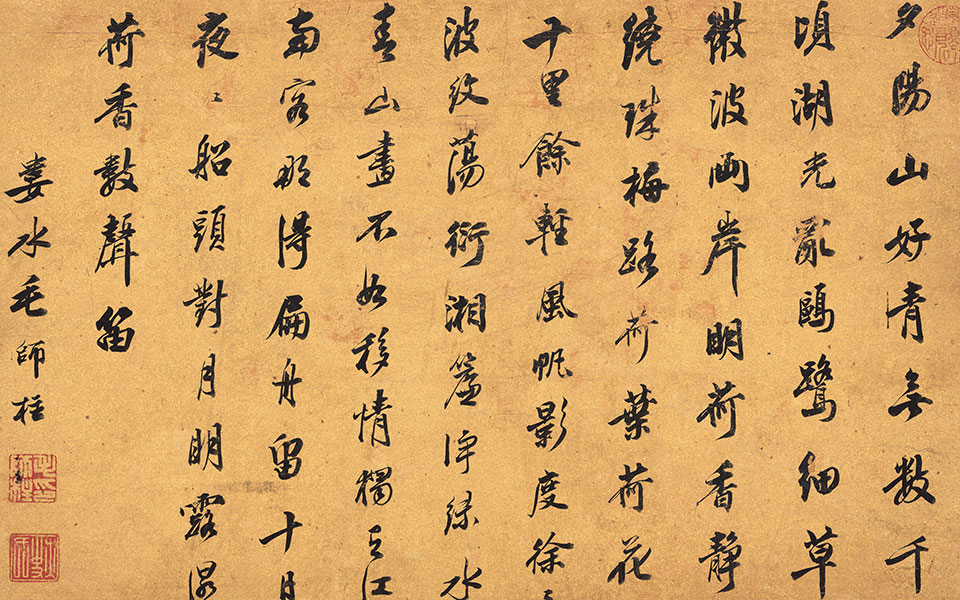 夕陽山好青無數千
頃湖光亂鷗鷺細草
微波兩岸明荷香靜
繞珠梅路荷葉荷花
十里餘輕風帆影度徐〻
波紋蕩衍湘簾淨綠水
青山畫不如移情獨立江
南客那得扁舟留十日
夜〻船頭對月明露濕
荷香數聲笛
婁水毛師柱